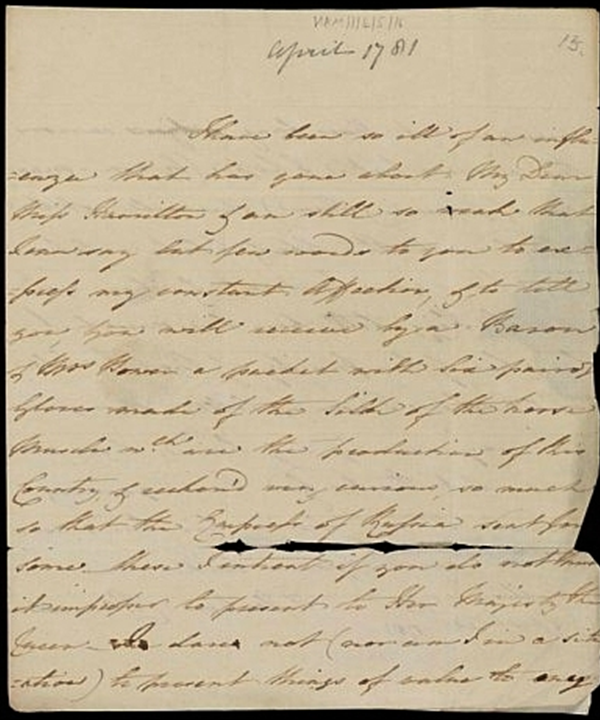 April 1781
13.
I have been so ill of an influ=
=enza that has gone about My Dear
Miss Hamilton & am still so weak that
I can say but few words to you to ex=
=press my constant Affection, & to tell
you, you will receive by a Baron
of Mrs a packet with six pair of
Gloves made of the Silk of the horse
Muscle wch. are the production of this
Country & reckon'd very curious, so much
so that the Empress of Russia sent for
some these I intent if you do not think
it improper to present to Her Majesty the
Queen I dare not (nor am I in a situ
=ation) to present things of value to any